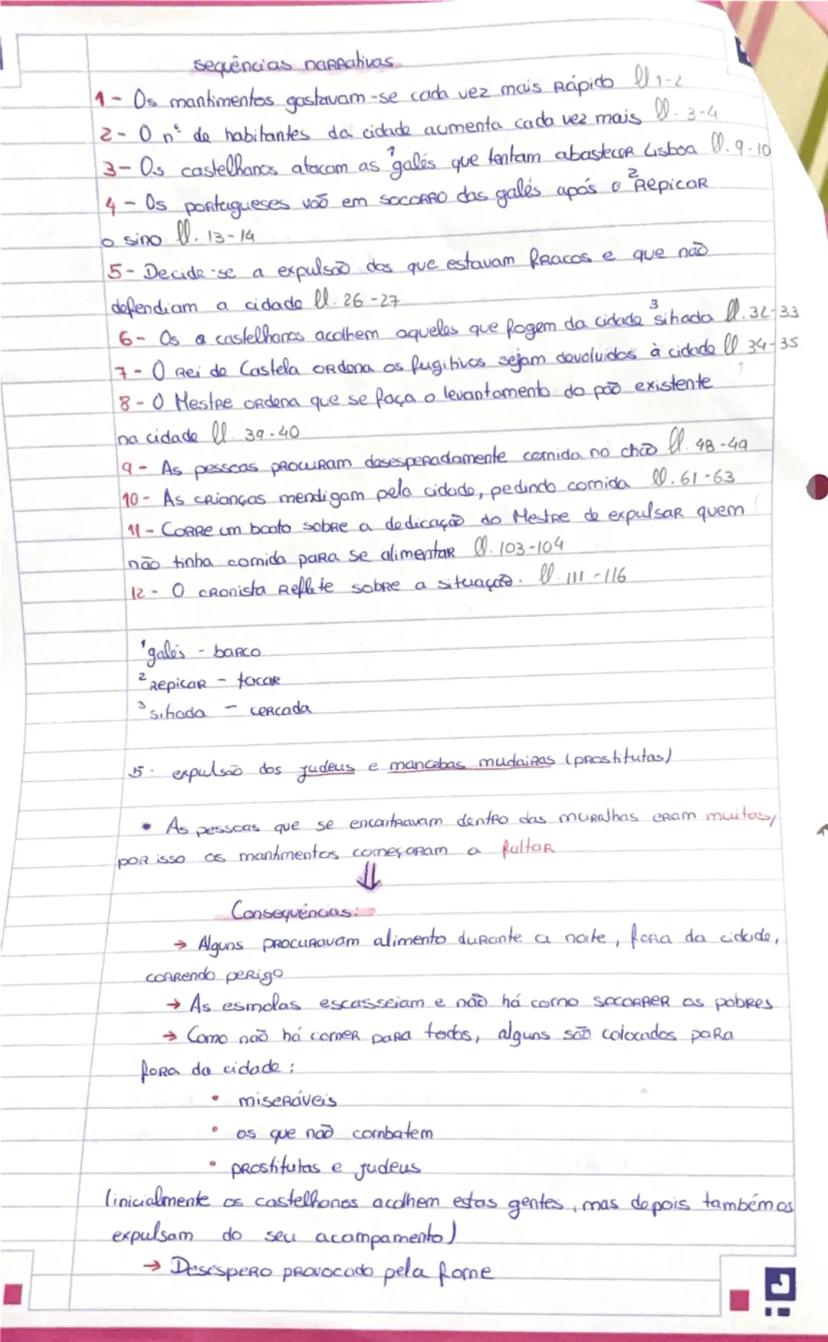 sequências narrativas
1- Os mantimentos gastavam-se cada vez mais rápido ll 1-2
2- O nº de habitantes da cidade aumenta cada vez mais ll. 3-4
3- Os castelhanos atacam as ¹galés que tentam abastecer Lisboa ll. 9-10
4- Os portugueses vão em socorro das galés após o ²repicar
o sino ll. 13-14
5- Decide-se a expulsão dos que estavam fracos e que não
defendiam a cidade ll. 26-27
6- Os a castelhanos acolhem aqueles que fogem da cidade ³sihada ll. 32-33
7- O rei de Castela ordena os fugitivos sejam devolvidos à cidade ll 34-35
8- O Mestre ordena que se faça o levantamento do pão existente
na cidade ll. 39-40
9- As pessoas procuram desesperadamente comida no chão ll. 48-49
10- As crianças mendigam pela cidade, pedindo comida ll. 61-63
11- Corre um boato sobre a dedicação do Mestre de expulsar quem
não tinha comida para se alimentar ll. 103-104
12- O cronista reflete sobre a situação. ll. 111-116
¹galés - barco
²repicar - tocar
³sihada - cercada
5- expulsão dos judeus e mancebas mudairas (prostitutas)
• As pessoas que se encontravam dentro das muralhas eram muitas,
por isso os mantimentos começaram a faltar
⇓
Consequências:
→ Alguns procuravam alimento durante a noite, fora da cidade,
correndo perigo
→ As esmolas escasseiam e não há como socorrer os pobres
→ Como não há comer para todos, alguns são colocados para
fora da cidade:
• miseráveis
• os que não combatem
• prostitutas e judeus
(inicialmente os castelhanos acolhem estas gentes, mas depois também os
expulsam do seu acampamento)
→ Desespero provocado pela fome